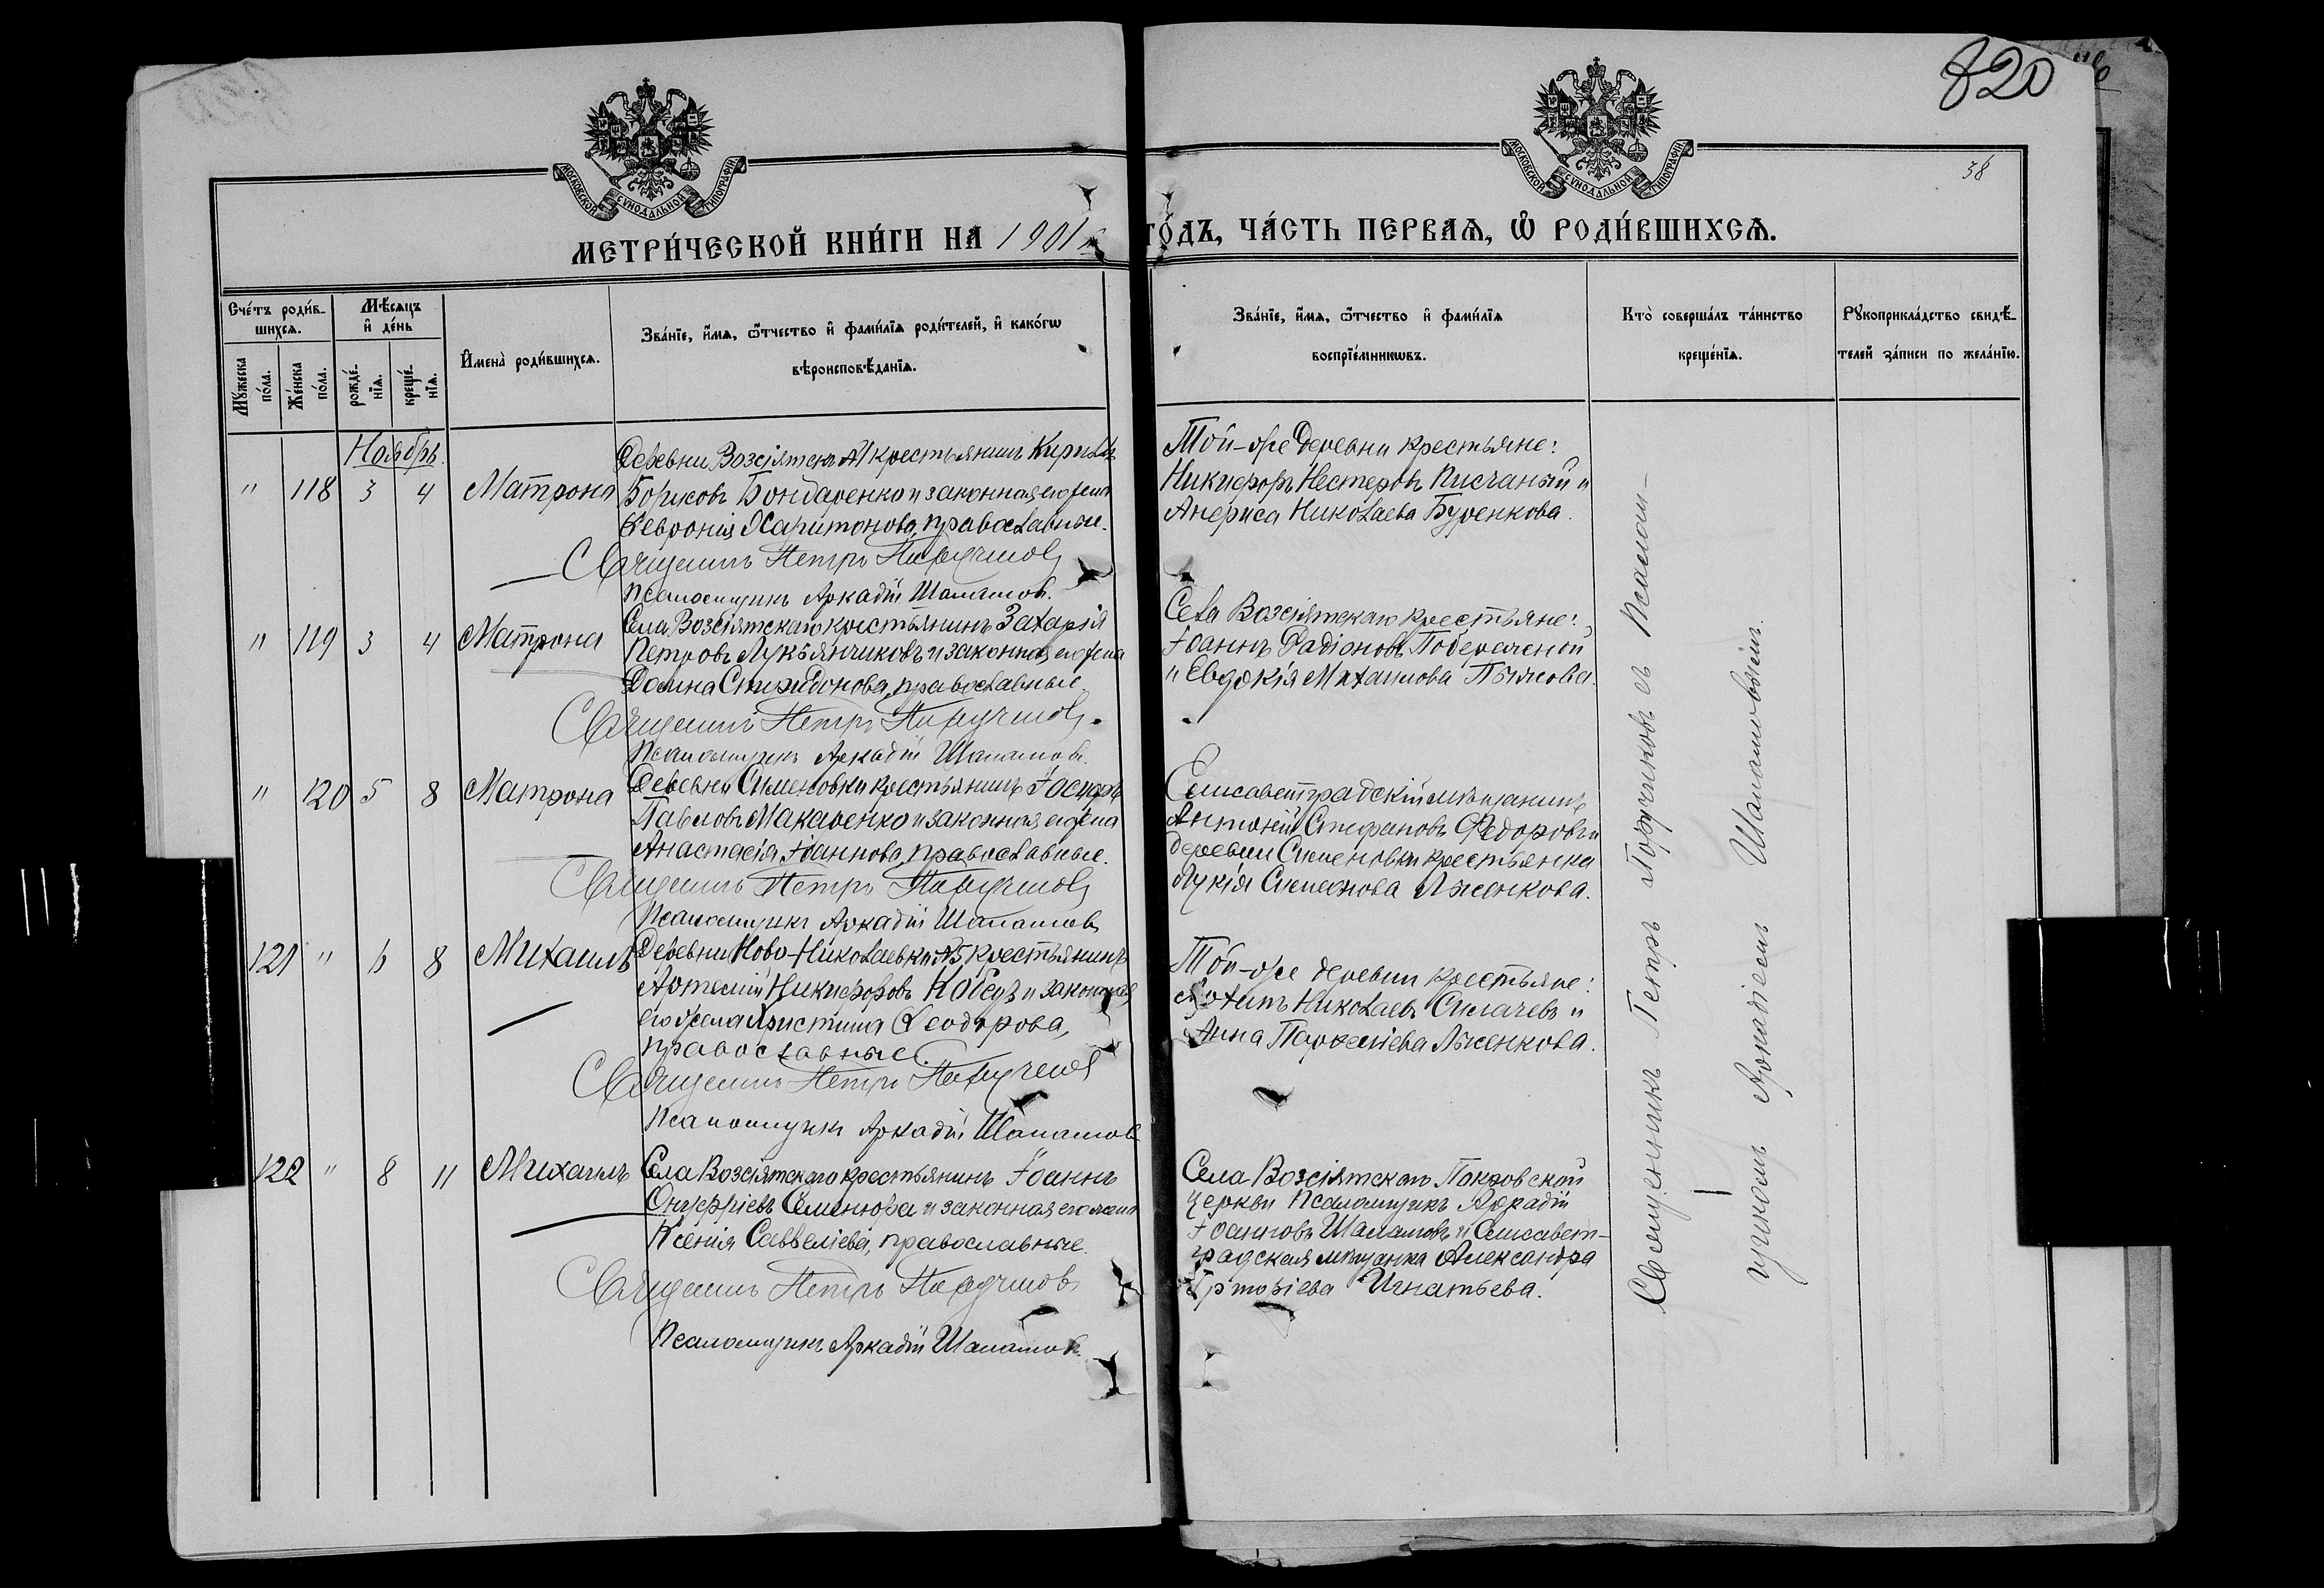 820
38
МОСКОВСКОЙ СѴНОДАЛЬНОЙ ТИПОГРАФІИ
МОСКОВСКОЙ СѴНОДАЛЬНОЙ ТИПОГРАФІИ
МЕТРИ́ЧЕСКОЙ КНИ́ГИ НА 1901 ГО́ДЪ, ЧА́СТЬ ПЕРВАѦ, Ѽ РОДИ́ВШИХСѦ.
Сче́тъ роди́в-
шихсѧ.
Мꙋ́жеска по́ла.
Же́нска по́ла.
Мѣ́сѧцъ
и҆ де́нь
рожде́-нїѧ.
креще́-нїѧ.
И҆мена̀ роди́вшихсѧ.
Зва́нїе, и҆́мѧ, ѻ҆́тчество и҆ фами́лїѧ роди́телей, и҆ како́гѡ
вѣроисповѣ́данїѧ.
Зва́нїе, и҆́мѧ, ѻ҆́тчество и҆ фами́лїѧ
воспрїе́мникѡвъ.
Кто̀ соверша́лъ та́инство
креще́нїѧ.
Рꙋкоприкла́дство свидѣ́-
телей за́писи по жела́нїю.
Ноябрь.
" 118 3 4 Матрона
Деревни Возсіятска №1 крестьянинъ Кириллъ
Борисовъ Бондаренко и законная его жена
Февронія Харитонова, православные.
Священникъ Петръ Поручиковъ
Псаломщикъ Аркадій Шаламовъ.
Той-же деревни крестьяне:
Никифоръ Нестеровъ Писчаный и
Николаева Буренкова.
" 119 3 4 Матрона
Села Возсіятскаго крестьянинъ Захарія
Петровъ Лукьянчиковъ и законная его жена
Домна Спиридонова, православные.
Священникъ Петръ Поручиковъ.
Псаломщикъ Аркадій Шаламовъ.
Села Возсіятскаго крестьяне:
Іоаннъ Радіоновъ Побережной
и Евдокія Михаилова
" 120 5 8 Матрона
Деревни Сименовки крестьянинъ Іосифъ
Павловъ Макаренко и законная его жена
Анастасія Іоаннова, православные.
Священникъ Петръ Поручиковъ
Псаломщикъ Аркадій Шаламовъ
Елисаветградскій мѣщанинъ
Антоній Стефановъ Федоровъ и
деревни Сименовки крестьянка
Лукія Симеонова Лысенкова.
121 " 6 8 Михаилъ
Деревни Ново-Николаевки №5 крестьянинъ
Артемій Никифоровъ Кобецъ и законная
его жена Христина Феодорова,
православные.
Священникъ Петръ Поручиковъ
Псаломщикъ Аркадій Шаламовъ
Той-же деревни крестьяне:
Николаевъ Силачевъ и
Анна Парфеніева Лысенкова.
122 " 8 11 Михаилъ
Села Возсіятскаго крестьянинъ Іоаннъ
Онуфріевъ Семенюра и законная его жена
Ксенія Савеліева, православные.
Священникъ Петръ Поручиковъ
Псаломщикъ Аркадій Шаламовъ.
Села Возсіятскаго Покровской
церкви псаломщикъ Аркадій
Іоанновъ Шаламовъ и Елисавет-
градская мѣщанка Александра
Игнатьева.
Священникъ Петръ Поручиковъ съ Псалом-
щикомъ Аркадіемъ Шаламовымъ.